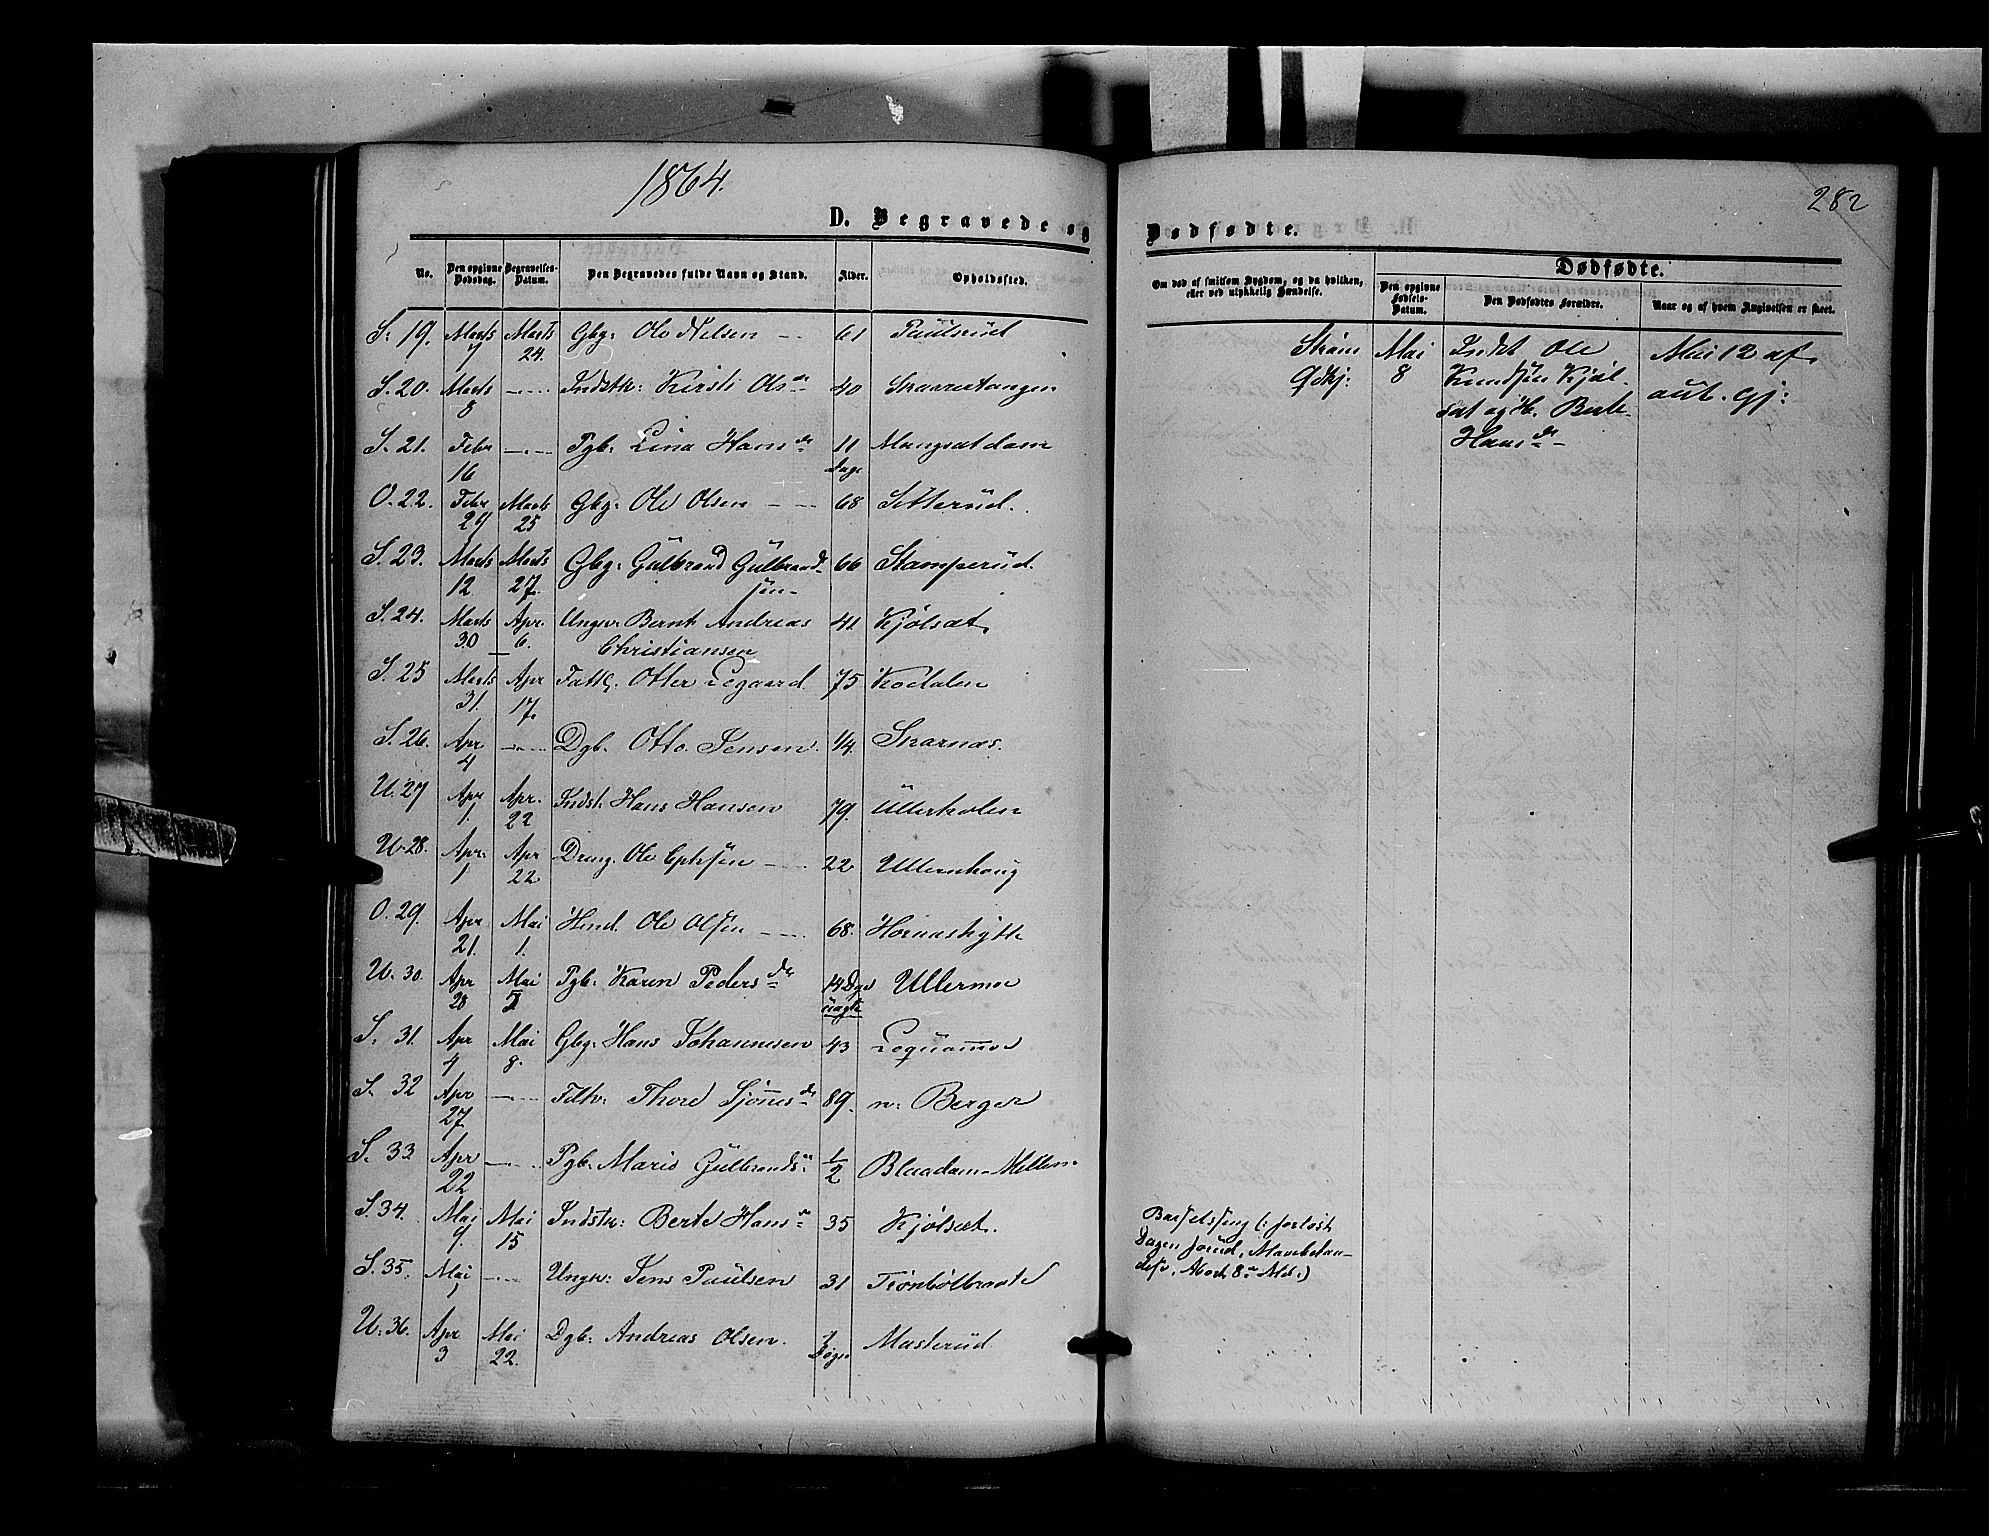 1864.
282
D. Begravede og
Dødfødte.
No. Den opgivne Dødsdag. Begravelses-Datum. Den Begravedes fulde Navn og Stand. Alder. Opholdssted.
Om død af smitsom Sygdom, og da hvilken, eller ved ulykkelig Hændelse.
Dødfødte.
Den opgivne Fødsels-Datum. Den Dødfødtes Forældre. Naar og af hvem Angivelsen er skeet.
S. 19. Marts 7 Marts 24. Gbg: Ole Nilsen 61 Paulsrud
S. 20. Marts 8 Indstk: Kirsti Olsdr 40 Skarrestangen
S. 21. Febr 16 Pgb: Lina Hansdr 11 Dage Mangsætdam
O. 22. Febr 29 Marts 25 Gbg: Ole Olsen 68 Setterud.
S. 23. Marts 12 Marts 27. Gbg: Gulbrand Gulbrand-
sen 66 Stamperud.
S. 24. Marts 30 Apr. 6. Ungk: Bernt Andreas
Christiansen 41 Kjølsæt.
S. 25 Marts 31. Apr 17. Fattk. Otter Legaard. 75 Kodalen
S. 26. Apr 4 Dgb. Otto Jensen. 1/4. Skarnæs.
U. 27 Apr 1. Apr. 22 Indst. Hans Hansen 79. Ullerholen
U. 28. Apr. 1 Apr 22 Dreng. Ole 22 Ullernhaug
O. 29. Apr 21. Mai 1. Ole Olsen 68. Horneshytt
U. 30. Apr 28 Mai 5 Pgb: Karen Pedersdr 14 Dge Ullermoe
S. 31. Apr 4 Mai 8. Gbg: Hans Johannesen 43
S. 32 Apr 27 Thore Sjønnesdr 89. n: Berger
S. 33 Apr 22 Pgb: Marie Gulbrands: 1/2 Blaadam-Mellem
S. 34. Mai 9. Mai 15 Indstk: Berte Hansdr 35 Kjølsæt.
S. 35. Mai 1 Ungk: Jens Paulsen 31 Trønbølbraate
U. 36. Apr 3 Mai 22. Dgb: Andreas Olsen. Døgn Masterud
Strøm Mai Indst Ole Mai 12 af
Gdkj: 8 Knudsen Kjøl- aut. Gj:
sæt og H. Berte
Hansdr
Barselseng (: forløst
Dagen forud,
8de Md:)